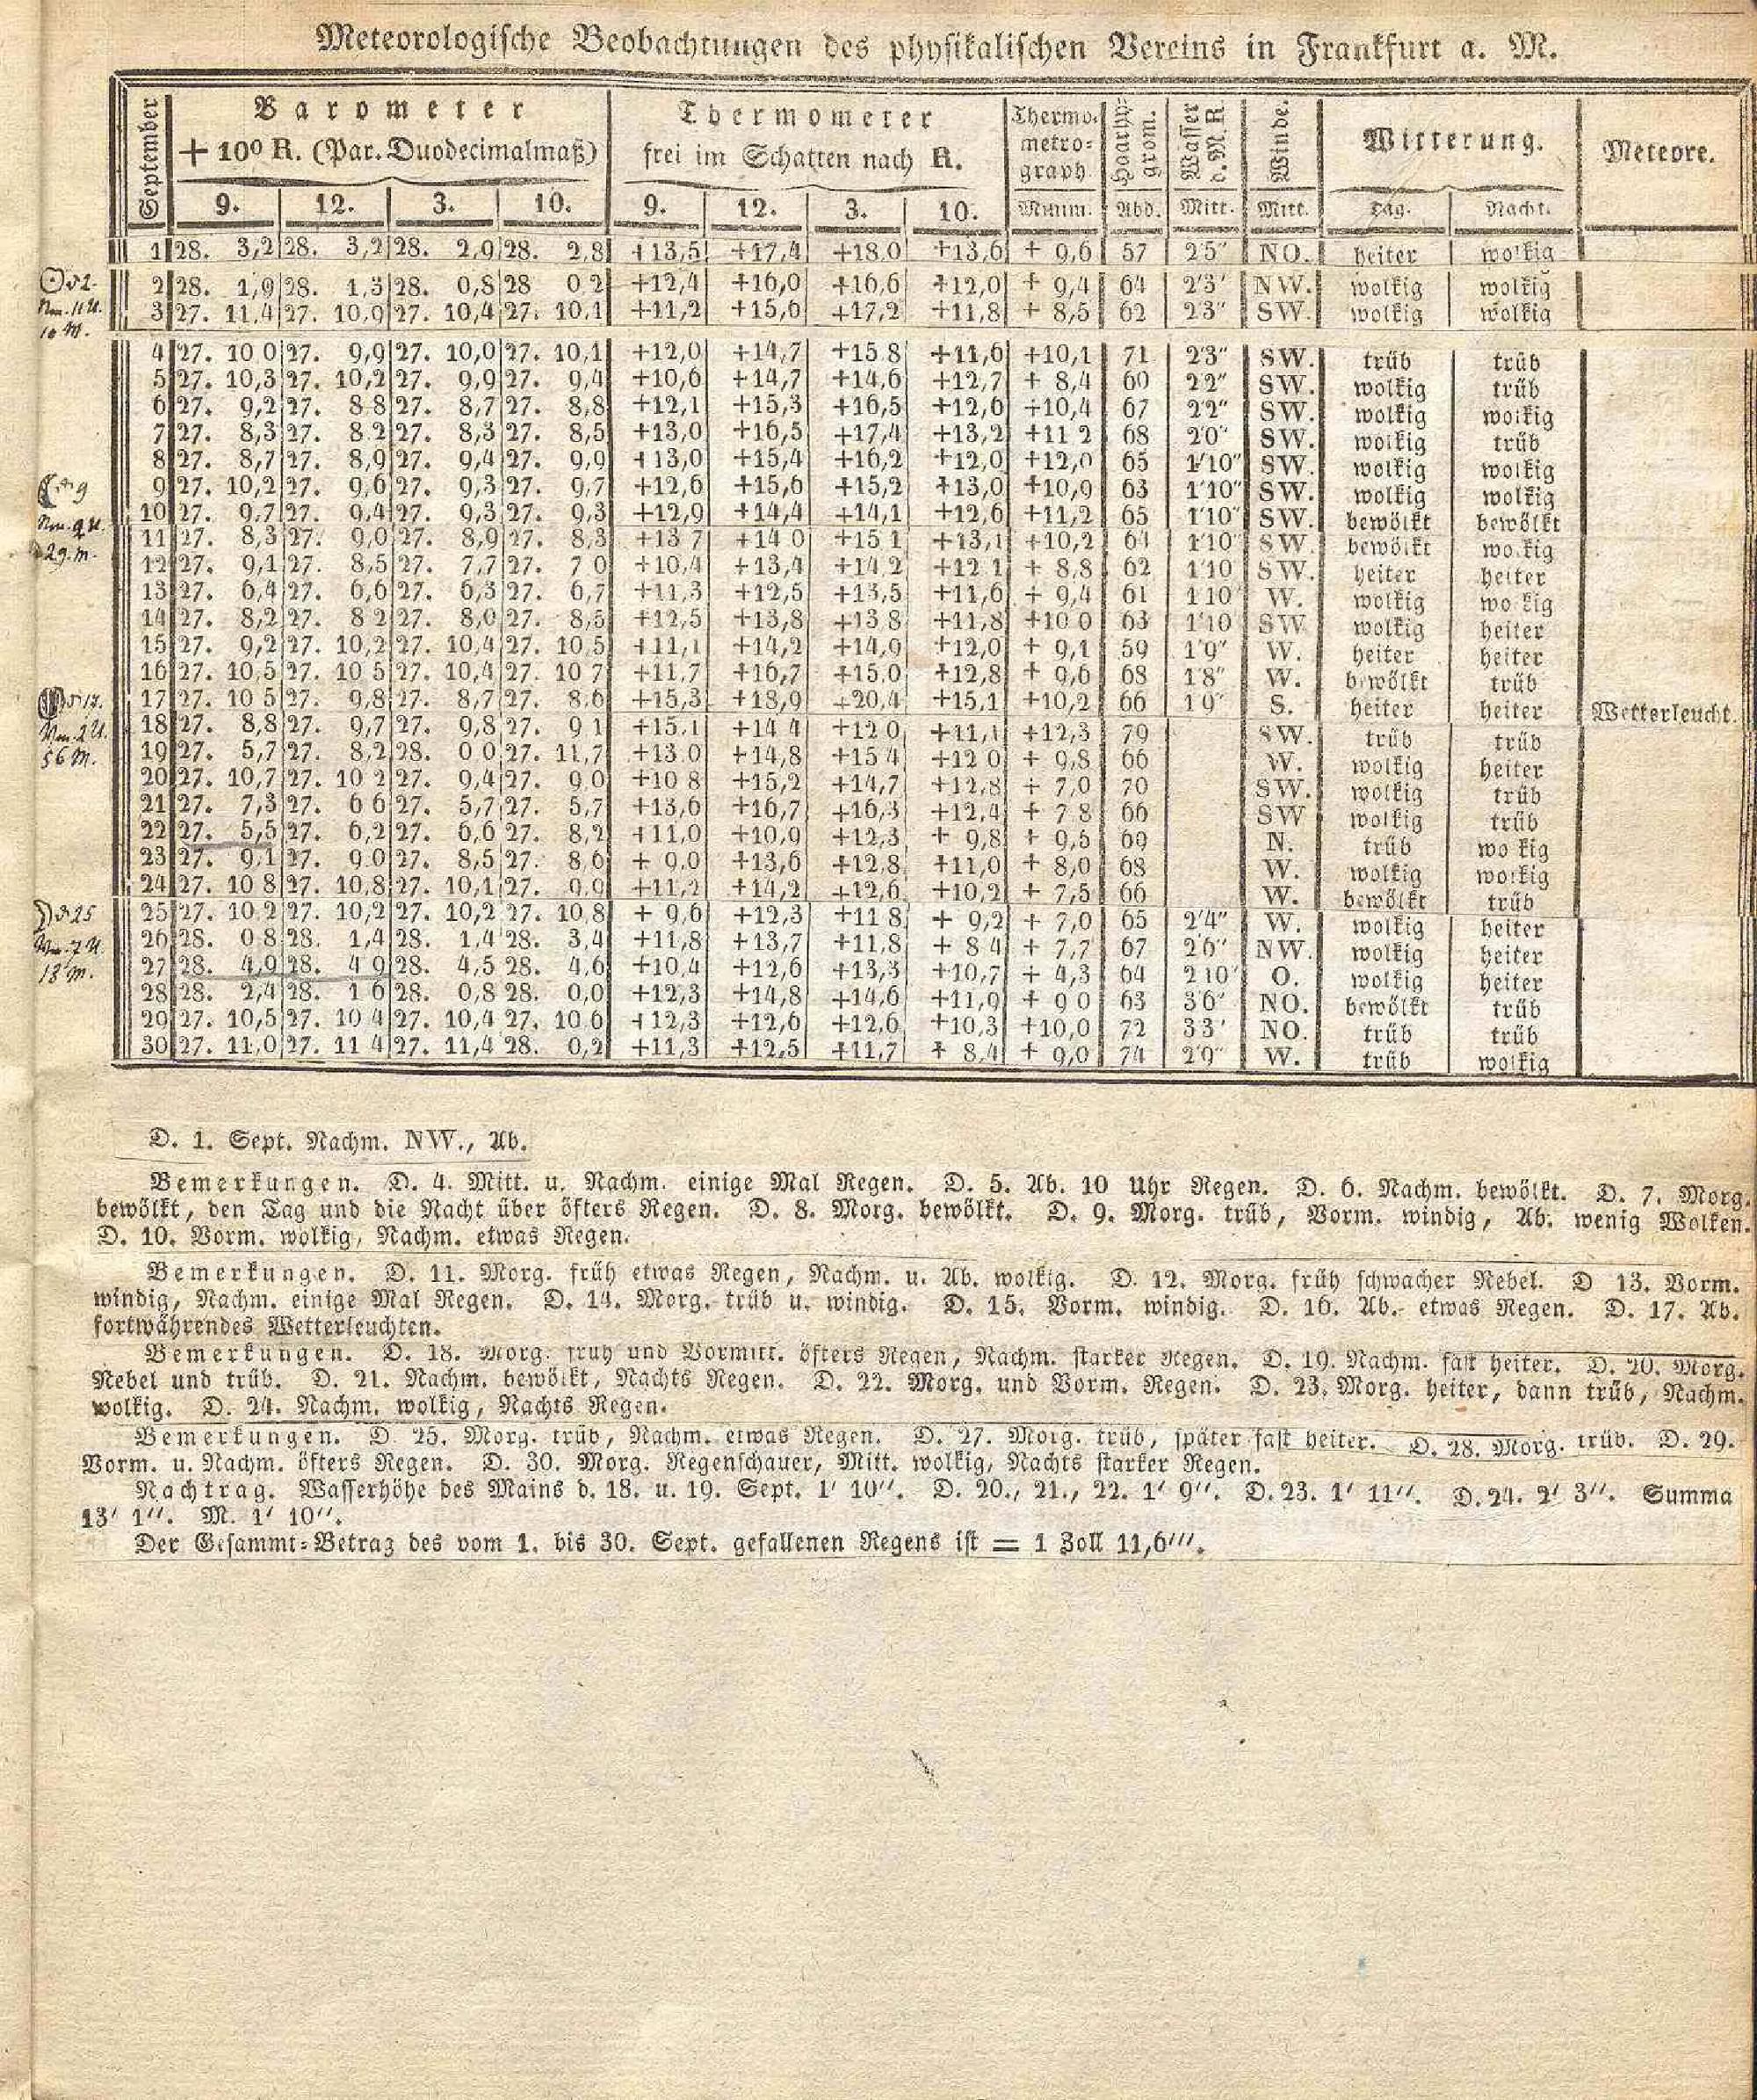 Meteorologische Beobachtungen des physikalischen Vereins in Frankfurt a. M.
September
Barometer
+ 10° R. (Par. Duodecimalmaß)
Thermometer
frei im Schatten nach R.
Thermo-
metro-
graph
Wasser
d. M. R
Winde.
Witterung.
Meteore.
9. 12. 3. 10. 9. 12. 3. 10. Minim. Abd. Mitt. Mitt. Tag. Nacht.
1 28. 3,2 28. 3,2 28. 2,9 28. 2,8 +13,5 +17,4 +18,0 +13,6 + 9,6 57 2'5" NO. heiter wolkig
☉ d 2.
2 28. 1,9 28. 1,3 28. 0,8 28 0,2 +12,4 +16,0 +16,6 +12,0 + 9,4 64 2'3' NW. wolkig wolkig
Nm. 11 U.
3 27. 11,4 27. 10,9 27. 10,4 27. 10,1 +11,2 +15,6 +17,2 +11,8 + 8,5 62 2'3" SW. wolkig wolkig
10 M.
4 27. 10 0 27. 9,9 27. 10,0 27. 10,1 +12,0 +14,7 +15 8 +11,6 +10,1 71 2'3" SW. trüb trüb
5 27. 10,3 27. 10,2 27. 9,9 27. 9,4 +10,6 +14,7 +14,6 +12,7 + 8,4 60 2'2" SW. wolkig trüb
6 27. 9,2 27. 8 8 27. 8,7 27. 8,8 +12,1 +15,3 +16,5 +12,6 +10,4 67 2'2" SW. wolkig wolkig
7 27. 8,3 27. 8 2 27. 8,3 27. 8,5 +13,0 +16,5 +17,4 +13,2 +11 2 68 2'0" SW. wolkig trüb
8 27. 8,7 27. 8,9 27. 9,4 27. 9,9 +13,0 +15,4 +16,2 +12,0 +12,0 65 1'10" SW. wolkig wolkig
9 27. 10,2 27. 9,6 27. 9,3 27. 9,7 +12,6 +15,6 +15,2 +13,0 +10,9 63 1'10" SW. wolkig wolkig
10 27. 9,7 27. 9,4 27. 9,3 27. 9,3 +12,9 +14,4 +14,1 +12,6 +11,2 65 1'10" SW. bewölkt bewölkt
11 27. 8,3 27. 9,0 27. 8,9 27. 8,3 +13 7 +14 0 +15 1 +13,1 +10,2 64 1'10" SW. bewölkt wolkig
29. M.
12 27. 9,1 27. 8,5 27. 7,7 27. 7 0 +10,4 +13,4 +14 2 +12 1 + 8,8 62 1'10 SW. heiter heiter
13 27. 6,4 27. 6,6 27. 6,3 27. 6,7 +11,3 +12,5 +13,5 +11,6 + 9,4 61 1 10" W. wolkig wolkig
14 27. 8,2 27. 8 2 27. 8,0 27. 8,5 +12,5 +13,8 +13 8 +11,8 +10 0 63 1'10 SW wolkig heiter
15 27. 9,2 27. 10,2 27. 10,4 27. 10,5 +11,1 +14,2 +14,9 +12,0 + 9,1 59 1'9" W. heiter heiter
16 27. 10,5 27. 10 5 27. 10,4 27. 10 7 +11,7 +16,7 +15,0 +12,8 + 9,6 68 1'8" W. bewölkt trüb
17 27. 10 5 27. 9,8 27. 8,7 27. 8,6 +15,3 +18,9 +20,4 +15,1 +10,2 66 1 9" S. heiter heiter Wetterleucht.
18 27. 8,8 27. 9,7 27. 9,8 27. 9 1 +15,1 +14 4 +12 0 +11,1 +12,3 79 SW. trüb trüb
56 M.
19 27. 5,7 27. 8,2 28. 0 0 27. 11,7 +13 0 +14,8 +15 4 +12 0 + 9,8 66 W. wolkig heiter
20 27. 10,7 27. 10 2 27. 9,4 27. 9,0 +10 8 +15,2 +14,7 +12,8 + 7,0 70 SW. wolkig trüb
21 27. 7,3 27. 6 6 27. 5,7 27. 5,7 +13,6 +16,7 +16,3 +12,4 + 7 8 66 SW wolkig trüb
22 27. 5,5 27. 6,2 27. 6,6 27. 8,2 +11,0 +10,9 +12,3 + 9,8 + 9,5 69 N. trüb wo kig
23 27. 9,1 27. 9 0 27. 8,5 27. 8,6 + 9,0 +13,6 +12,8 +11,0 + 8,0 68 W. wolkig wolkig
24 27. 10 8 27. 10,8 27. 10,1 27. 9,9 +11,2 +14,2 +12,6 +10,2 + 7,5 66 W. bewölkt trüb
☽ d 25
25 27. 10 2 27. 10,2 27. 10,2 27. 10,8 + 9,6 +12,3 +11 8 + 9,2 + 7,0 65 2'4" W. wolkig heiter
26 28. 0 8 28. 1,4 28. 1,4 28. 3,4 +11,8 +13,7 +11,8 + 8 4 + 7,7 67 2'6" NW. wolkig heiter
18 M.
27 28. 4,9 28. 4 9 28. 4,5 28. 4,6 +10,4 +12,6 +13,3 +10,7 + 4,3 64 2 10" O. wolkig heiter
28 28. 2,4 28. 1 6 28. 0,8 28. 0,0 +12,3 +14,8 +14,6 +11,9 + 9 0 63 3'6" NO. bewölkt trüb
29 27. 10,5 27. 10 4 27. 10,4 27. 10 6 +12,3 +12,6 +12,6 +10,3 +10,0 72 3 3' NO. trüb trüb
30 27. 11,0 27. 11 4 27. 11,4 28. 0,2 +11,3 +12,5 +11,7 + 8,4 + 9,0 74 2'9" W. trüb wolkig
D. 1. Sept. Nachm. NW., Ab.
Bemerkungen. D. 4. Mitt. u. Nachm. einige Mal Regen. D. 5. Ab. 10 Uhr Regen. D. 6. Nachm. bewölkt. D. 7. Morg.
bewölkt, den Tag und die Nacht über öfters Regen. D. 8. Morg. bewölkt. D. 9. Morg. trüb, Vorm. windig, Ab. wenig Wolken.
D. 10. Vorm. wolkig, Nachm. etwas Regen.
Bemerkungen. D. 11. Morg. früh etwas Regen, Nachm. u. Ab. wolkig. D. 12. Morg. früh schwacher Nebel. D 13. Vorm.
windig, Nachm. einige Mal Regen. D. 14. Morg. trüb u. windig. D. 15. Vorm. windig. D. 16. Ab. etwas Regen. D. 17. Ab.
fortwährendes Wetterleuchten.
Bemerkungen. D. 18. Morg. früh und Vormitt. öfters Regen, Nachm. starker Regen. D. 19. Nachm. fast heiter. D. 20. Morg.
Nebel und trüb. D. 21. Nachm. bewölkt, Nachts Regen. D. 22. Morg. und Vorm. Regen. D. 23. Morg. heiter, dann trüb, Nachm.
wolkig. D. 24. Nachm. wolkig, Nachts Regen.
Bemerkungen. D. 25. Morg. trüb, Nachm. etwas Regen. D. 27. Morg. trüb, später fast heiter. D. 28. Morg. trüb. D. 29.
Vorm. u. Nachm. öfters Regen. D. 30. Morg. Regenschauer, Mitt. wolkig, Nachts starker Regen.
Nachtrag. Wasserhöhe des Mains d. 18. u. 19. Sept. 1' 10''. D. 20., 21., 22. 1' 9''. D. 23. 1' 11''. D. 24. 2' 3''. Summa
13' 1''. M. 1' 10''.
Der Gesammt-Betrag des vom 1. bis 30. Sept. gefallenen Regens ist = 1 Zoll 11,6'''.